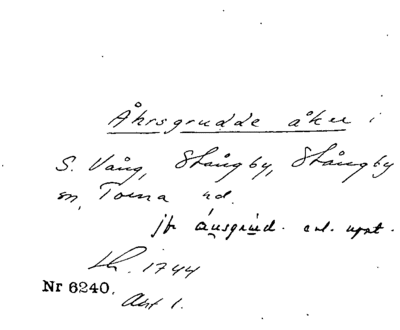 Åhrsgrudde åker i
S. Vång, Stångby, Stångby
sn, Torna hd.
jfr åusgrud. enl. uppt.
Lh. 1744
Nr 6240.
Akt 1.